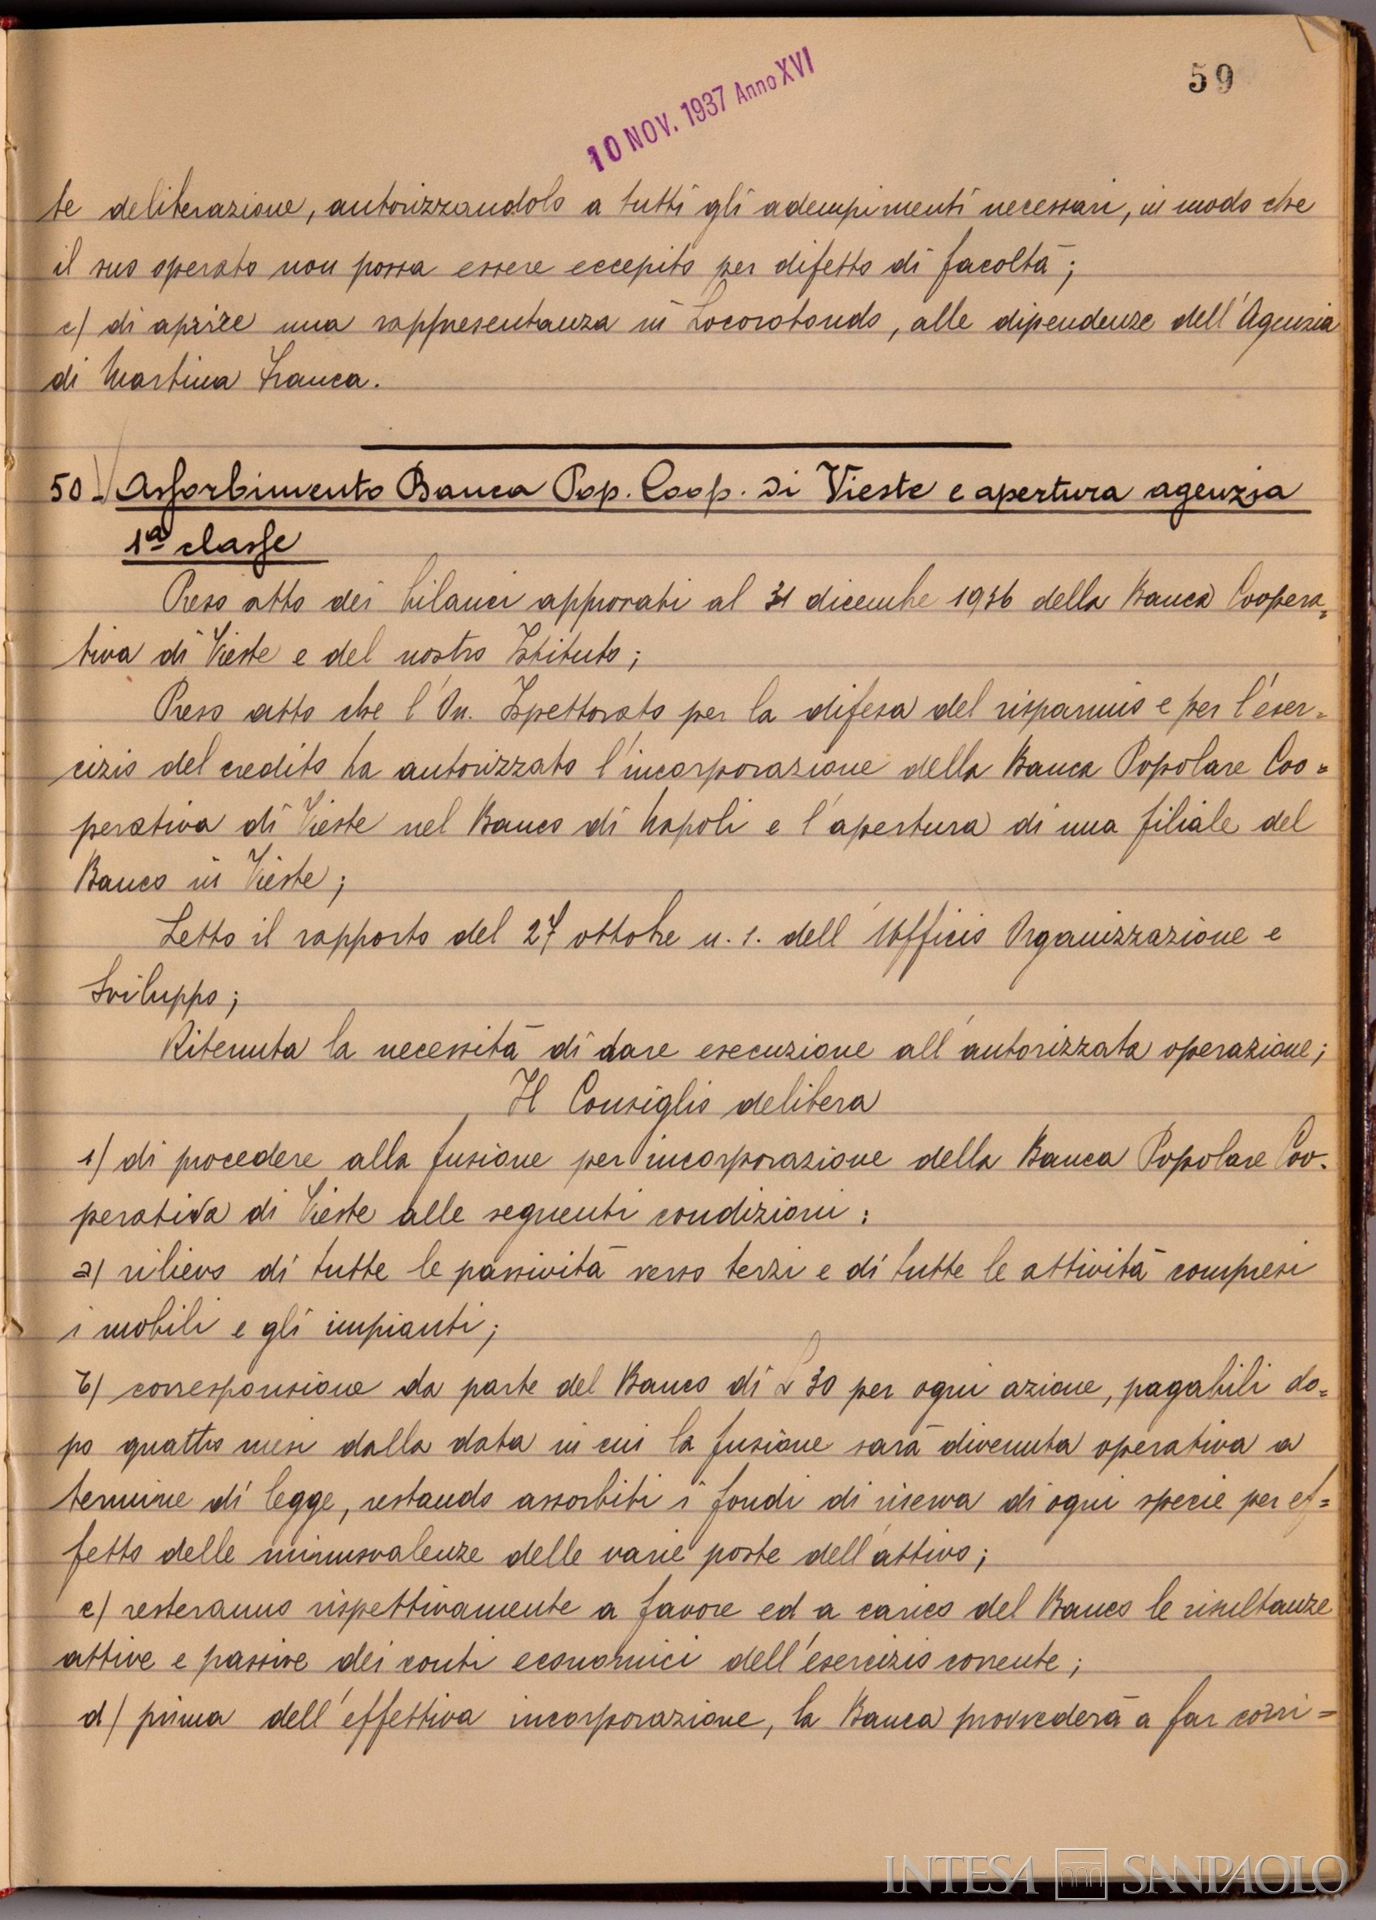 59
10 NOV. 1937 Anno XVI
te deliberazione, autorizzandolo a tutti gli adempimenti necessari, in modo che
il suo operato non possa essere eccepito per difetto di facoltà;
c) di aprire una rappresentanza in Locorotondo, alle dipendenze dell'Agenzia
di Martina Franca.
50 - Assorbimento Banca Pop. Coop. di Vieste e apertura agenzia
1ª classe
Preso atto dei bilanci approvati al 31 dicembre 1936 della Banca Coopera=
tiva di Vieste e del nostro Istituto;
Preso atto che l'On. Ispettorato per la difesa del risparmio e per l'eser=
cizio del credito ha autorizzato l'incorporazione della Banca Popolare Coo=
perativa di Vieste nel Banco di Napoli e l'apertura di una filiale del
Banco in Vieste;
Letto il rapporto del 27 ottobre u.s. dell'Ufficio Organizzazione e
Sviluppo;
Ritenuta la necessità di dare esecuzione all'autorizzata operazione;
Il Consiglio delibera
1) di procedere alla fusione per incorporazione della Banca Popolare Coo=
perativa di Vieste alle seguenti condizioni:
a) rilievo di tutte le passività verso terzi e di tutte le attività compresi
i mobili e gli impianti;
b) corresponsione da parte del Banco di £ 30 per ogni azione, pagabili do=
po quattro mesi dalla data in cui la fusione sarà divenuta operativa a
termine di legge, restando assorbiti i fondi di riserva di ogni specie per ef=
fetto delle minusvalenze delle varie poste dell'attivo;
c) resteranno rispettivamente a favore ed a carico del Banco le risultanze
attive e passive dei conti economici dell'esercizio corrente;
d) prima dell'effettiva incorporazione, la Banca provvederà a far corri=
INTESA SANPAOLO